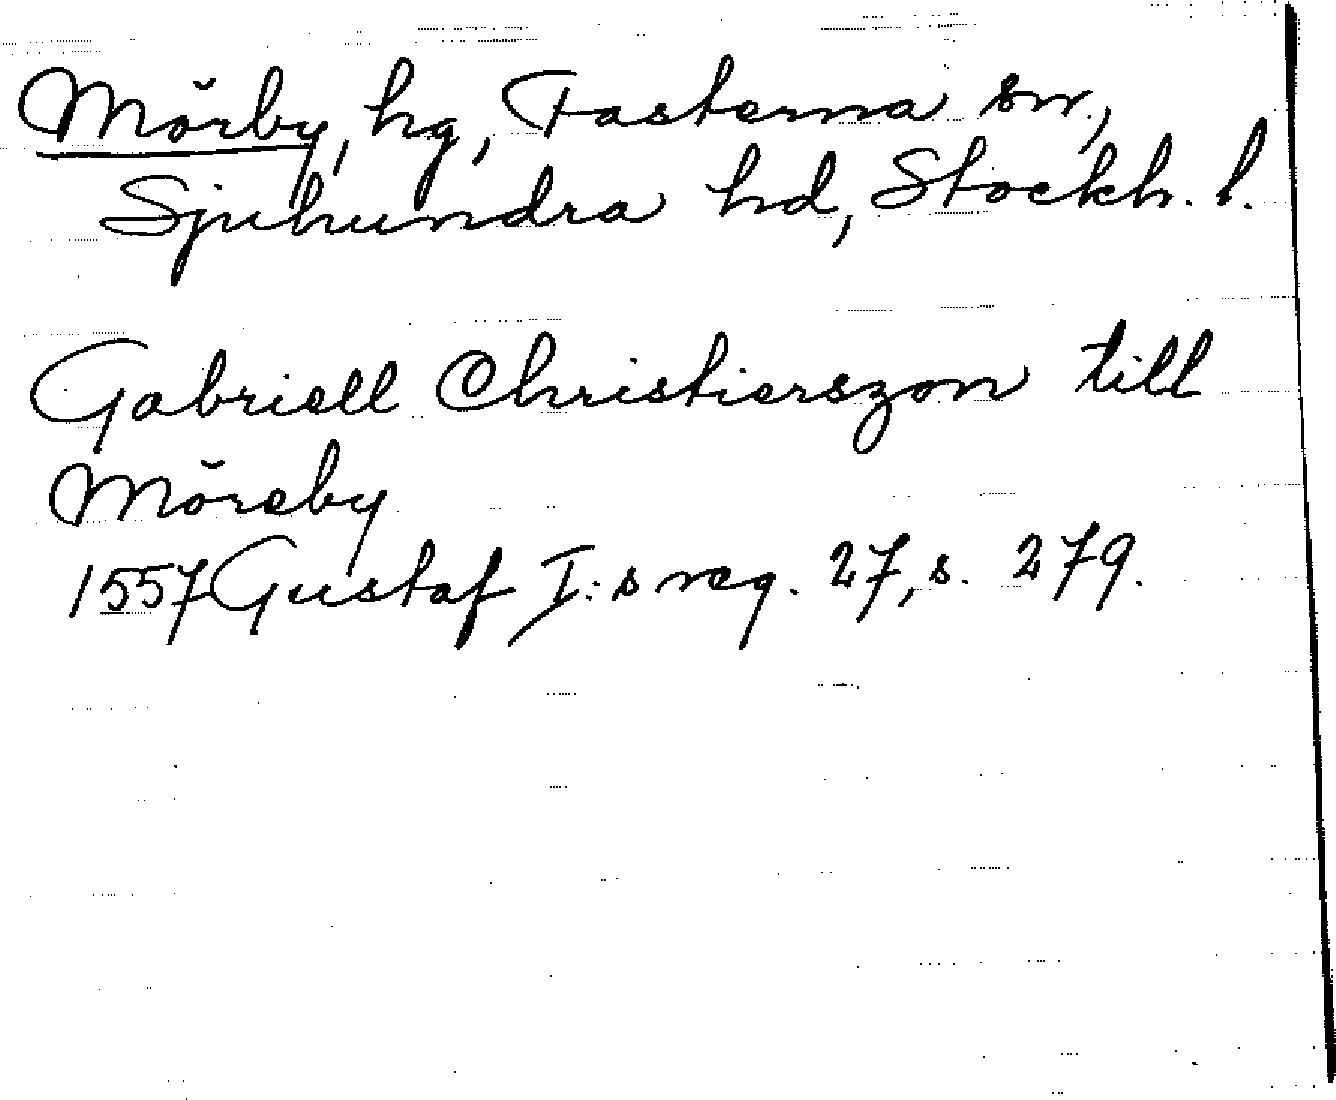 Mörby, hg, Fasterna sn,
Sjuhundra hd, Stockh. l.
Gabriell Christierszon till
Möreby
1557 Gustaf I:s reg. 27, s. 279.